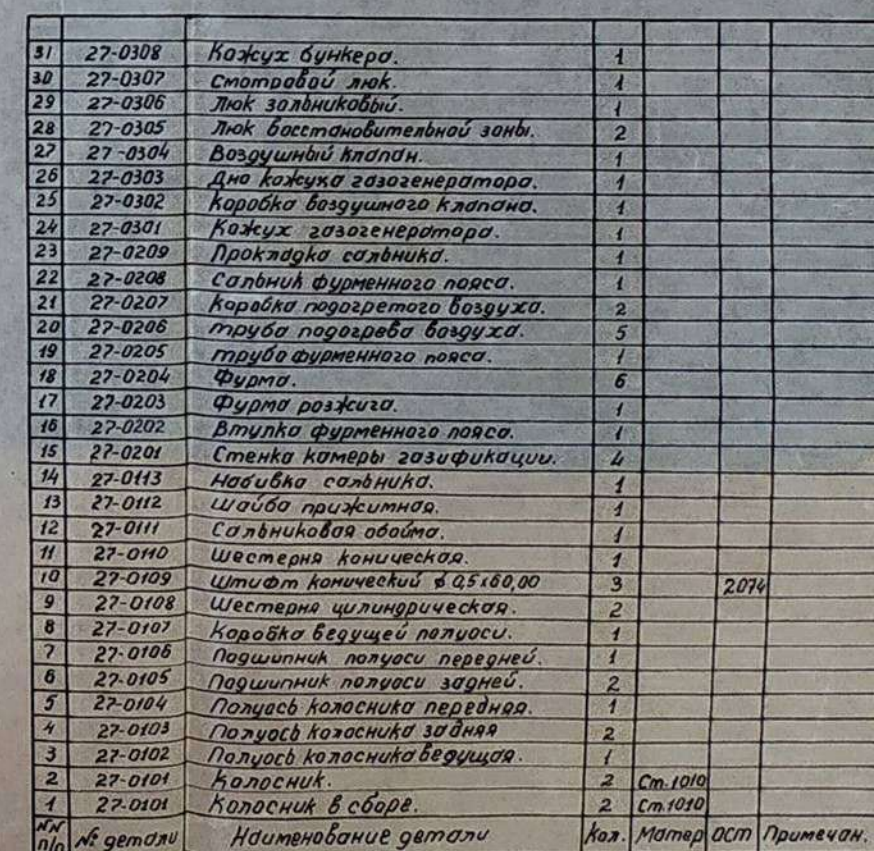 31 27-0308 Кожух бункера. 1
30 27-0307 Смотровой люк. 1
29 27-0306 Люк зольниковый. 1
28 27-0305 Люк восстановительной зоны. 2
27 27-0304 Воздушный клапан. 1
26 27-0303 Дно кожуха газогенератора. 1
25 27-0302 Коробка воздушного клапана. 1
24 27-0301 Кожух газогенератора. 1
23 27-0209 Прокладка сальника. 1
22 27-0208 Сальник фурменного пояса. 1
21 27-0207 Коробка подогретого воздуха. 2
20 27-0206 Труба подогрева воздуха. 5
19 27-0205 Труба фурменного пояса. 1
18 27-0204 Фурма. 6
17 27-0203 Фурма розжига. 1
16 27-0202 Втулка фурменного пояса. 1
15 27-0201 Стенка камеры газификации. 4
14 27-0113 Набивка сальника. 1
13 27-0112 Шайба прижимная. 1
12 27-0111 Сальниковая обойма. 1
11 27-0110 Шестерня коническая. 1
10 27-0109 Штифт конический ϕ 0,5х60,00 3 2074
9 27-0108 Шестерня цилиндрическая. 2
8 27-0107 Коробка ведущей полуоси. 1
7 27-0106 Подшипник полуоси передней. 1
6 27-0105 Подшипник полуоси задней. 2
5 27-0104 Полуось колосника передняя. 1
4 27-0103 Полуось колосника задняя 2
3 27-0102 Полуось колосника ведущая. 1
2 27-0101 Колосник. 2 Ст.1010
1 27-0101 Колосник в сборе. 2 Ст.1010
NN п/п № детали Наименование детали Кол. Матер ОСТ Примечан.